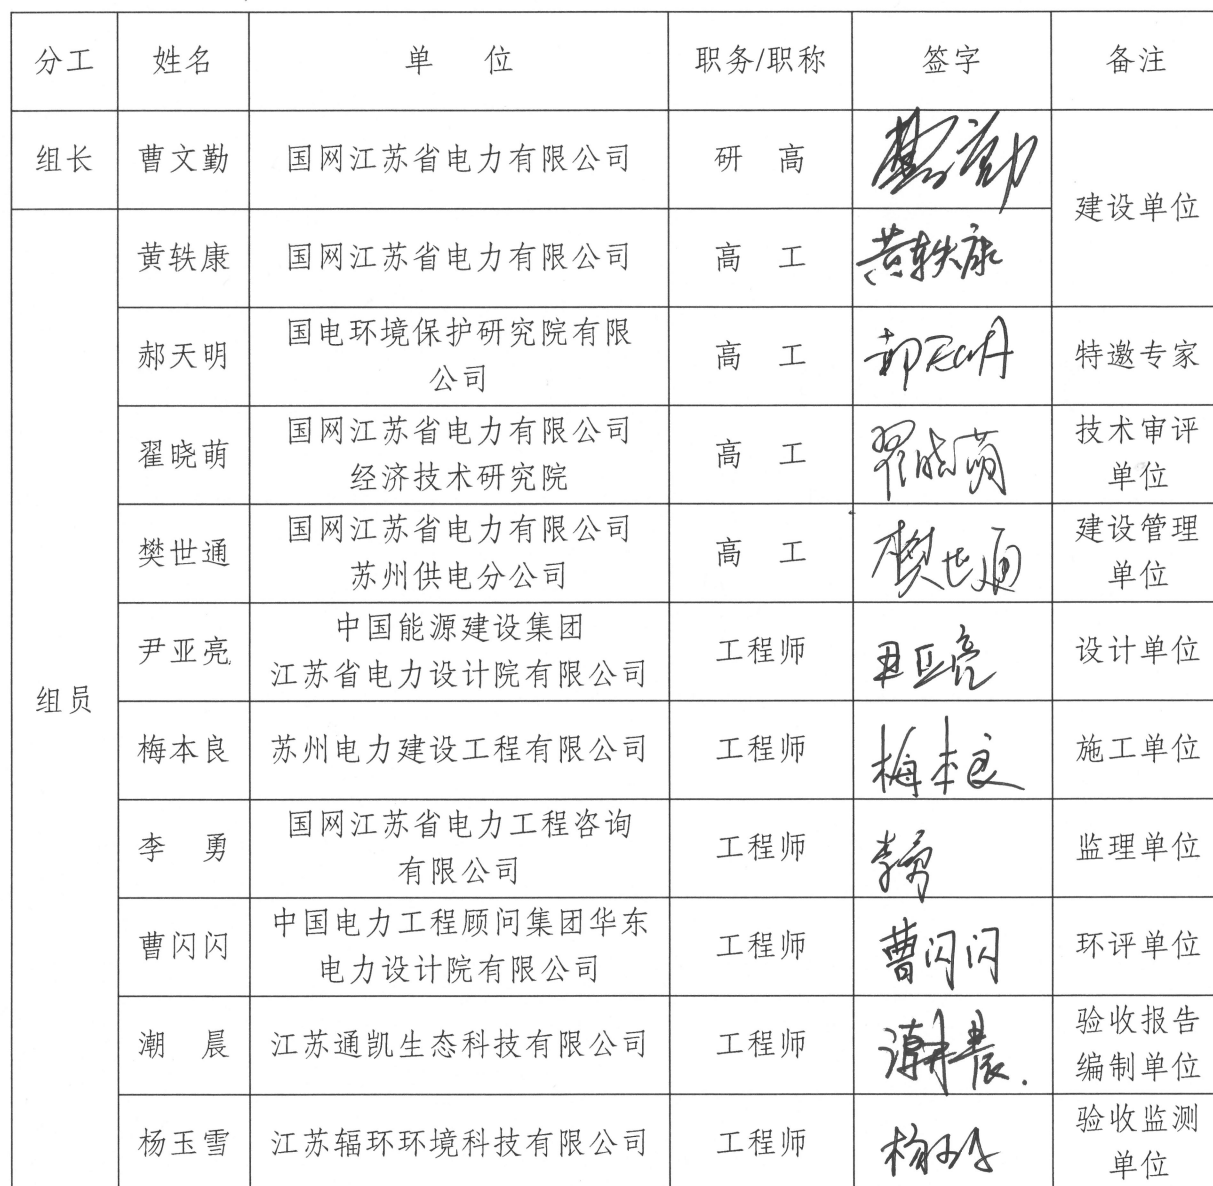 分工 姓名 单 位 职务/职称 签字 备注
组长 曹文勤 国网江苏省电力有限公司 研 高 曹文勤 建设单位
组员
黄轶康 国网江苏省电力有限公司 高 工 黄轶康
郝天明 国电环境保护研究院有限
公司 高 工 郝天明 特邀专家
翟晓萌 国网江苏省电力有限公司
经济技术研究院 高 工 翟晓萌 技术审评
单位
樊世通 国网江苏省电力有限公司
苏州供电分公司 高 工 樊世通 建设管理
单位
尹亚亮 中国能源建设集团
江苏省电力设计院有限公司 工程师 尹亚亮 设计单位
梅本良 苏州电力建设工程有限公司 工程师 梅本良 施工单位
李 勇 国网江苏省电力工程咨询
有限公司 工程师 李勇 监理单位
曹闪闪 中国电力工程顾问集团华东
电力设计院有限公司 工程师 曹闪闪 环评单位
潮 晨 江苏通凯生态科技有限公司 工程师 潮晨. 验收报告
编制单位
杨玉雪 江苏辐环环境科技有限公司 工程师 杨玉雪 验收监测
单位